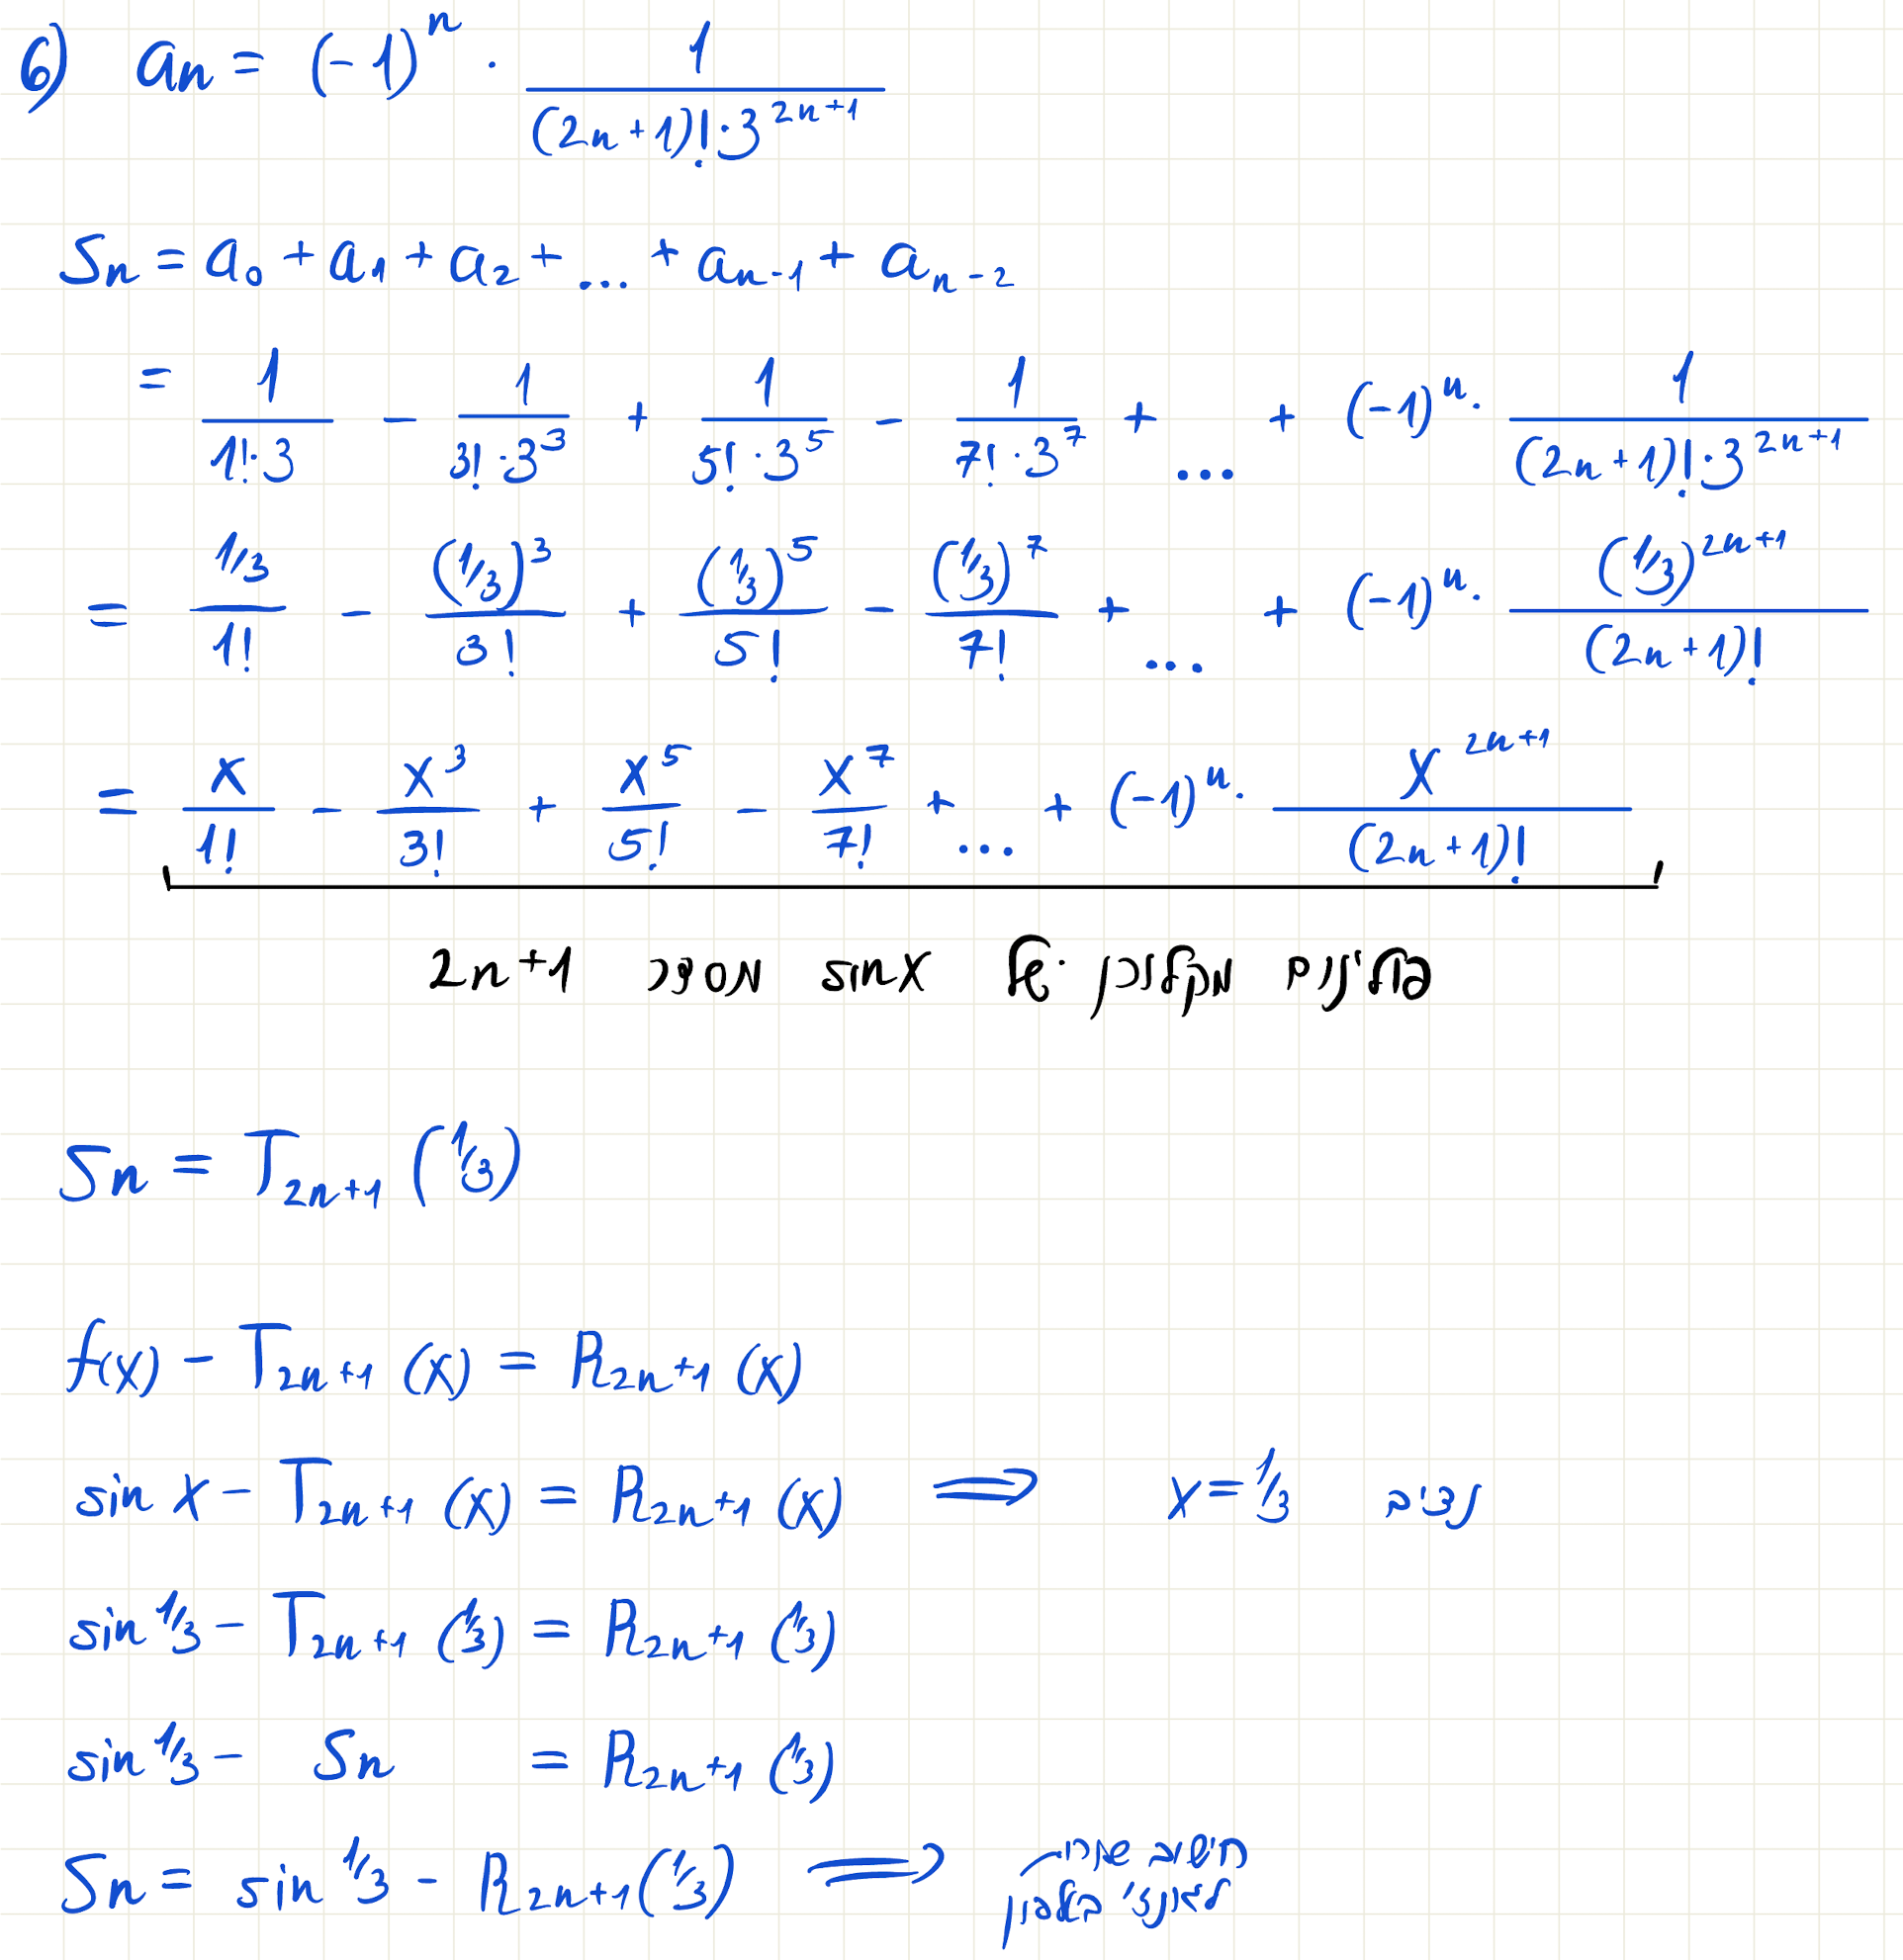 6) an = (-1)^n · 1/((2n+1)!·3^(2n+1))
Sn = a₀ + a₁ + a₂ + ... + a_(n-1) + a_(n-2)
= 1/(1!·3) - 1/(3!·3^3) + 1/(5!·3^5) - 1/(7!·3^7) + ... + (-1)^n · 1/((2n+1)!·3^(2n+1))
= (1/3)/1! - (1/3)^3/3! + (1/3)^5/5! - (1/3)^7/7! + ... + (-1)^n · (1/3)^(2n+1)/(2n+1)!
= x/1! - x^3/3! + x^5/5! - x^7/7! + ... + (-1)^n · x^(2n+1)/(2n+1)!
פולינום מקלורן של sinx מסדר 2n+1
Sn = T_(2n+1) (1/3)
f(x) - T_(2n+1) (x) = R_(2n+1) (x)
sin x - T_(2n+1) (x) = R_(2n+1) (x) ⟹ x = 1/3 נציב
sin 1/3 - T_(2n+1) (1/3) = R_(2n+1) (1/3)
sin 1/3 - Sn = R_(2n+1) (1/3)
Sn = sin 1/3 - R_(2n+1) (1/3) ⟹ חישוב